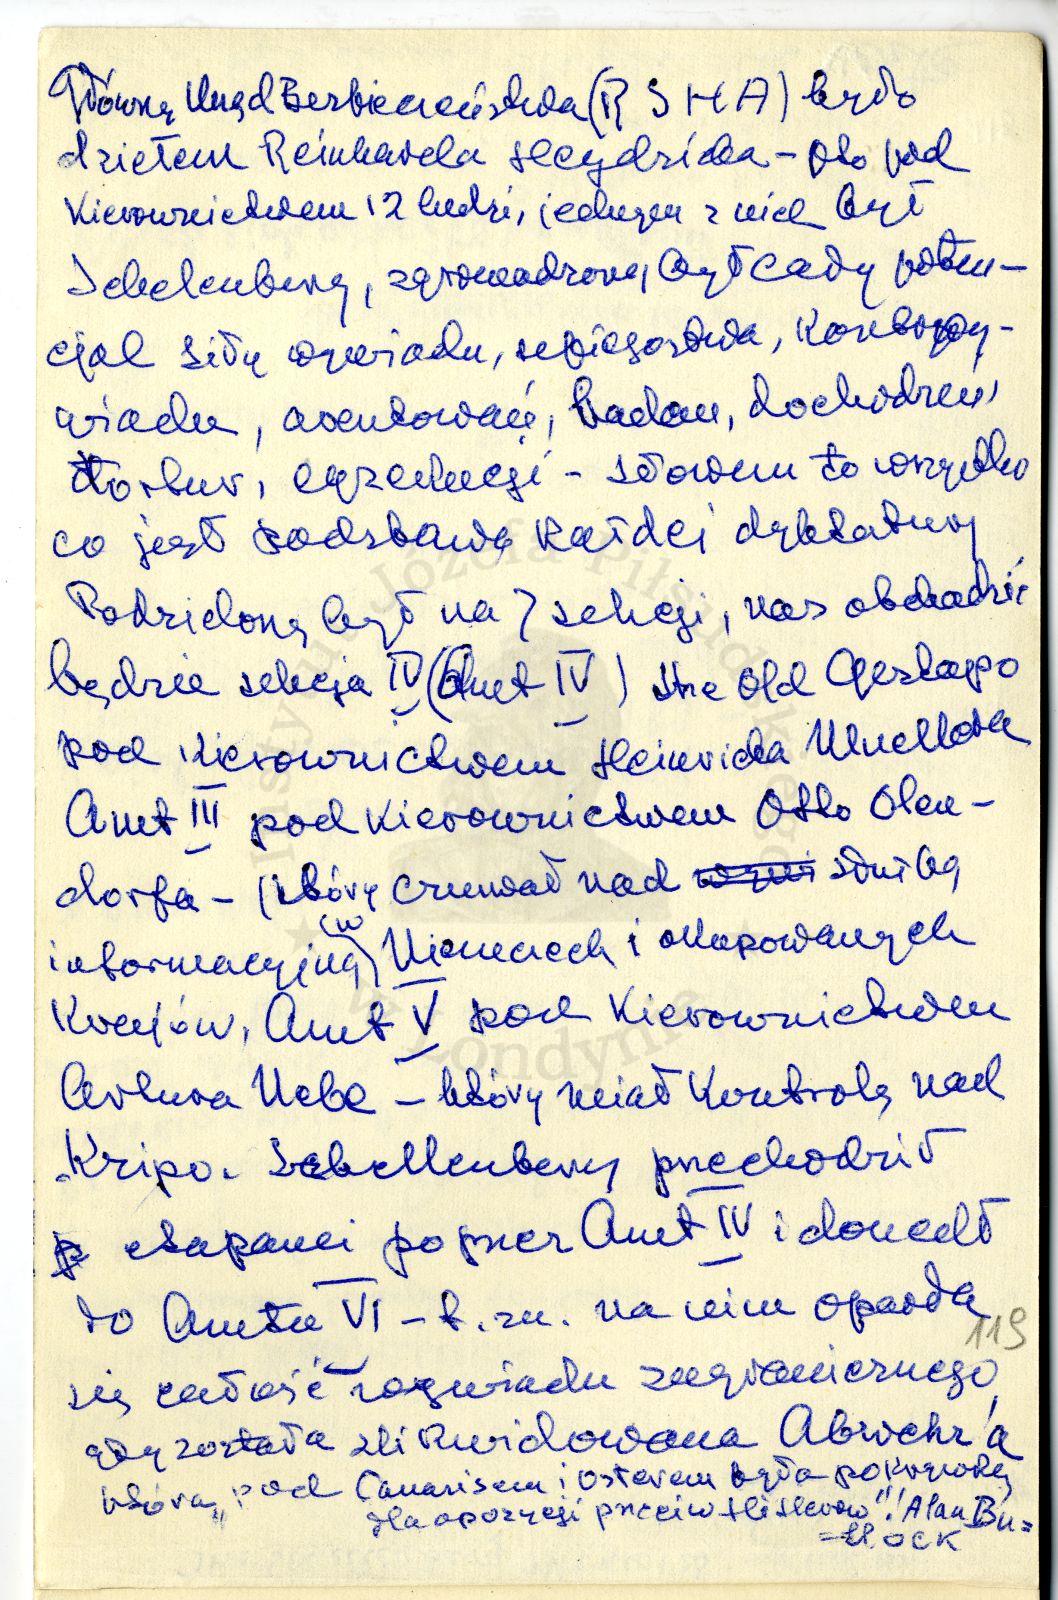 Główny Urząd Bezpieczeństwa (RSHA) było
dziełem Reinharda Heydricha – oto pod
kierownictwem 12 ludzi, jednym z nich był
Schelenberg, zgromadzony był cały poten-
cjał siły wywiadu, szpiegostwa, kontrwy-
wiadu, aresztowań, badań, dochodzeń,
tortur, egzekucji – słowem to wszystko
co jest podstawą każdej dyktatury
Podzielony był na 7 sekcji, nas obchodzić
będzie sekcja IV (Amt IV) the old Gestapo
pod kierownictwem Heinricha Muellera
Amt III pod kierownictwem Otto Olen-
dorfa – (który czuwał nad służbą
informacyjną (w) Niemczech i okupowanych
krajów, Amt V pod kierownictwem
Artura Nebe – który miał kontrolę nad
Kripo. Schellenberg przechodził
etapami poprzez Amt IV i doszedł
do Amtu VI – t. zn. na nim oparta
się całość wywiadu zagranicznego,
gdy została zlikwidowana Abwehr'a
która "pod Canarisem i Osterem była pokrywką
dla opozycji przeciw Hitlerow"! Alan Bu=
=llock
119
Instytut Józefa Piłsudskiego
w Londynie